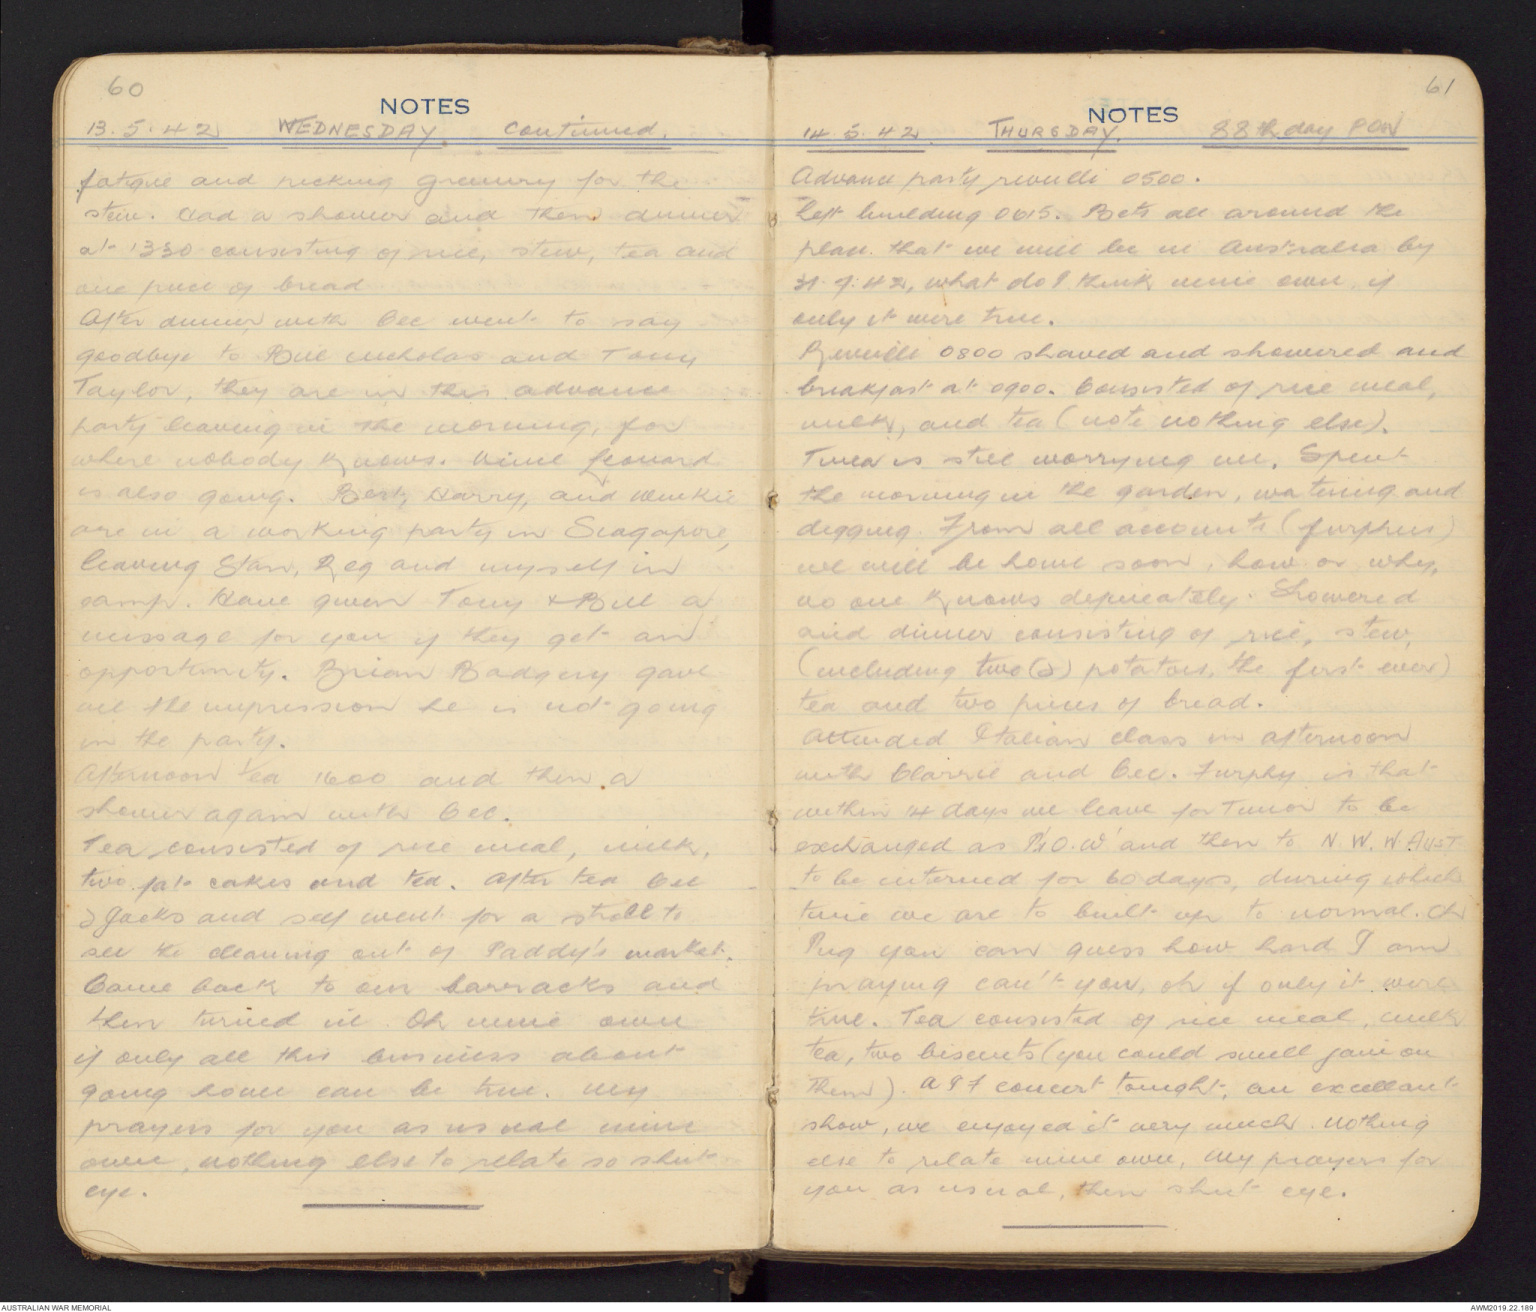 60
NOTES
13.5.42 WEDNESDAY Continued.
fatigue and picking greenery for the
stew. Had a shower and then dinner
at 1330 consisting of rice, stew, tea and
one piece of bread
After dinner with Cec went to say
goodbye to Bill Nicholas and Tony
Taylor, they are in this advance
party leaving in the morning, for
where nobody knows. Leonard
is also going. Bert, Harry, and
are in a working party in Singapore,
leaving Stan, Reg and myself in
camp. Have given Tony & Bill a
message for you if they get an
opportunity. Brian Badgery gave
me the impression he is not going
in the party.
Afternoon tea 1600 and then a
shower again with Cec.
Tea consisted of rice meal, milk,
two fat cakes and tea. After tea Cec
Jacks and self went for a stroll to
see the cleaning out of Paddy's market.
Came back to our barracks and
then turned in. Oh mine own
if only all this business about
going home can be true. My
prayers for you as usual mine
own, nothing else to relate so shut
eye.
61
NOTES
14.5.42 THURSDAY. 88th day POW
Advance party reveille 0500.
Left building 0615. Bets all around the
place that we will be in Australia by
31.9.42, what do I think mine own, if
only it were true.
Reveille 0800 shaved and showered and
breakfast at 0900. Consisted of rice meal,
milk, and tea (note nothing else).
Tinea is still worrying me. Spent
the morning in the garden, watering and
digging. From all accounts (furphies)
we will be home soon, how or why,
no one knows definately. Showered
and dinner consisting of rice, stew,
(including two (2) potatoes, the first ever)
tea and two pieces of bread.
Attended Italian class in afternoon
with Clarrie and Cec. Furphy is that
within 14 days we leave for Timor to be
exchanged as P.O.W' and then to N.W. W Aust
to be interned for 60 days, during which
time we are to built up to normal. Oh
Peg you can guess how hard I am
praying can't you, oh if only it were
true. Tea consisted of rice meal, milk
tea, two biscuits (you could smell jam on
them). AIF concert tonight, an excellant
show, we enjoyed it very much. Nothing
else to relate mine own, my prayers for
you as usual, then shut eye.
AUSTRALIAN WAR MEMORIAL
AWM2019.22.189